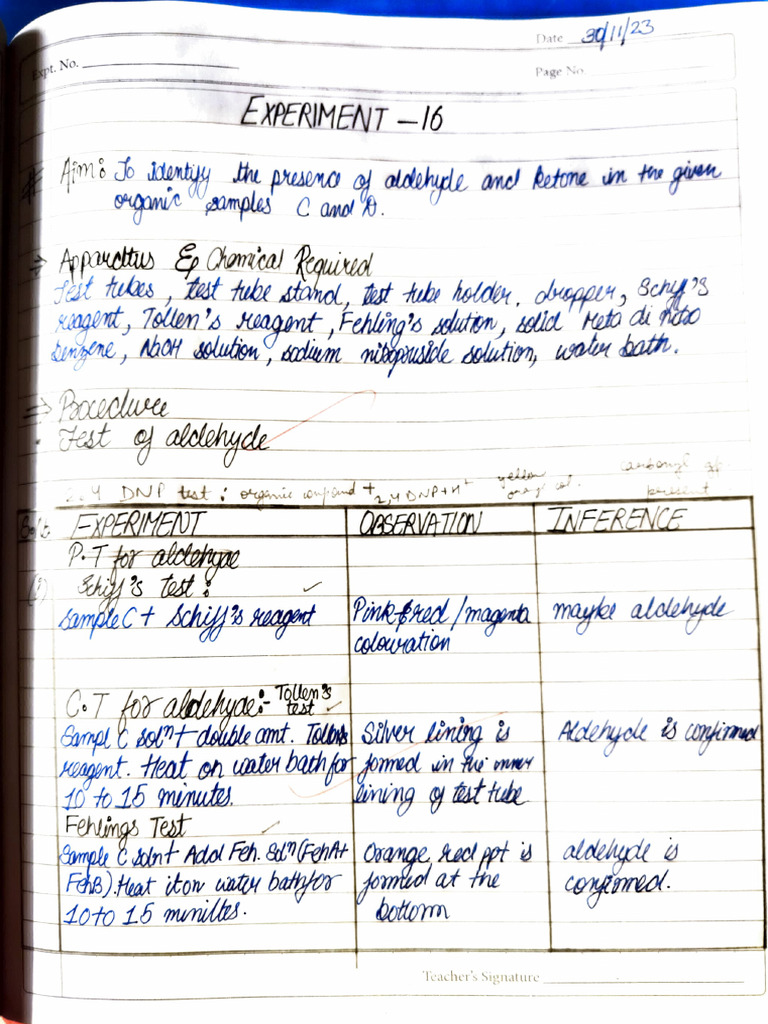 Date 30/11/23
Expt. No.
Page No.
EXPERIMENT - 16
Aim: To identify the presence of aldehyde and ketone in the given
organic samples C and D.
=> Apparattus & Chemical Required
Test tubes, test tube stand, test tube holder. dropper, Schiff's
reagent, Tollen's reagent, Fehling's solution, solid Meta di nitro
benzene, NaOH solution, sodium nitoprusside solution, water bath.
=> Procedure
Test of aldehyde
2,4 DNP test: organic compound + 2,4 DNP + H+ yellow present
EXPERIMENT OBSERVATION INFERENCE
P.T for aldehyde
Schiff's test:
Sample C + Schiff's reagent Pink red / magenta maybe aldehyde
colouration
C.T for aldehyde:- Tollen's
test
Sampl C soln + double amt. Tollens Silver lining is Aldehyde is confirmed
reagent. Heat on water bath for formed in the inner
10 to 15 minutes. lining of test tube
Fehlings Test
Sample C soln + Add Feh. Soln (FehA+ Orange red ppt is aldehyde is
FehB). Heat it on water bath for formed at the confirmed.
10 to 15 minittes. bottom
Teacher's Signature